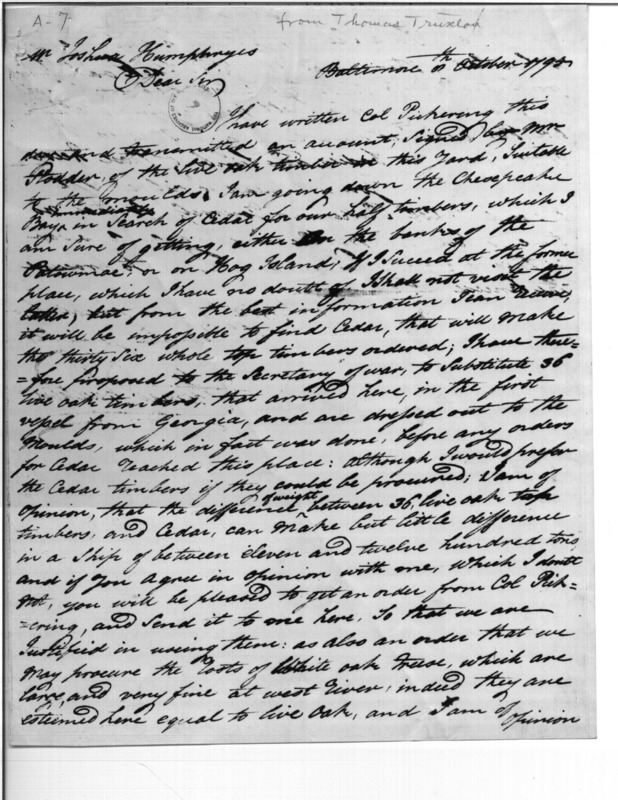 A-7
from Thomas Truxton
Mr Joshua Humphreyes
Dear Sir
Baltimore 8th October 1795
I have written Col Pickering this
day and transmitted an account, Signed by Mr
Stodder, of the live oak timber in this Yard, Suitable
to the moulds. I am going down the Chesepeake
Bay immediately in Search of Cedar for our half timbers, which I
am Sure of getting, either on the banks of the
Patowmac or on Hog Island; If I Succeed at the former
place, which I have no doubt of I Shall not visit the
latter, but from the best information I can
it will be impossible to find Cedar, that will make
the thirty Six whole top timbers ordered; I have there=
=fore proposed to the Secretary of war, to Substitute 36
live oak timbers, that arrived here, in the first
vessel from Georgia, and are dressed out to the
Moulds, which in fact was done, before any orders
for Cedar reached this place: although I would prefer
the Cedar timbers if they could be procured; I am of
opinion, that the difference of weight between 36, live oak top
timbers, and Cedar, can make but little difference
in a Ship of between Eleven and twelve hundred tons
and if you agree in opinion with me, which I doubt
not, you will be pleased to get an order from Col Pick=
=ering, and Send it to me here, So that we are
Justified in useing them: as also an order that we
may procure the roots of White oak trees, which are
large, and very fine at west River, indeed they are
estimed here equal to live oak, and I am of
opinion